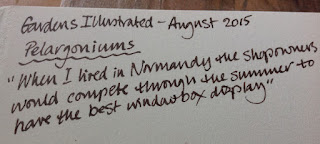 Gardens Illustrated - August 2015
Pelargoniums
"When I lived in Normandy the shopowners
would compete through the summer to
have the best windowbox display"